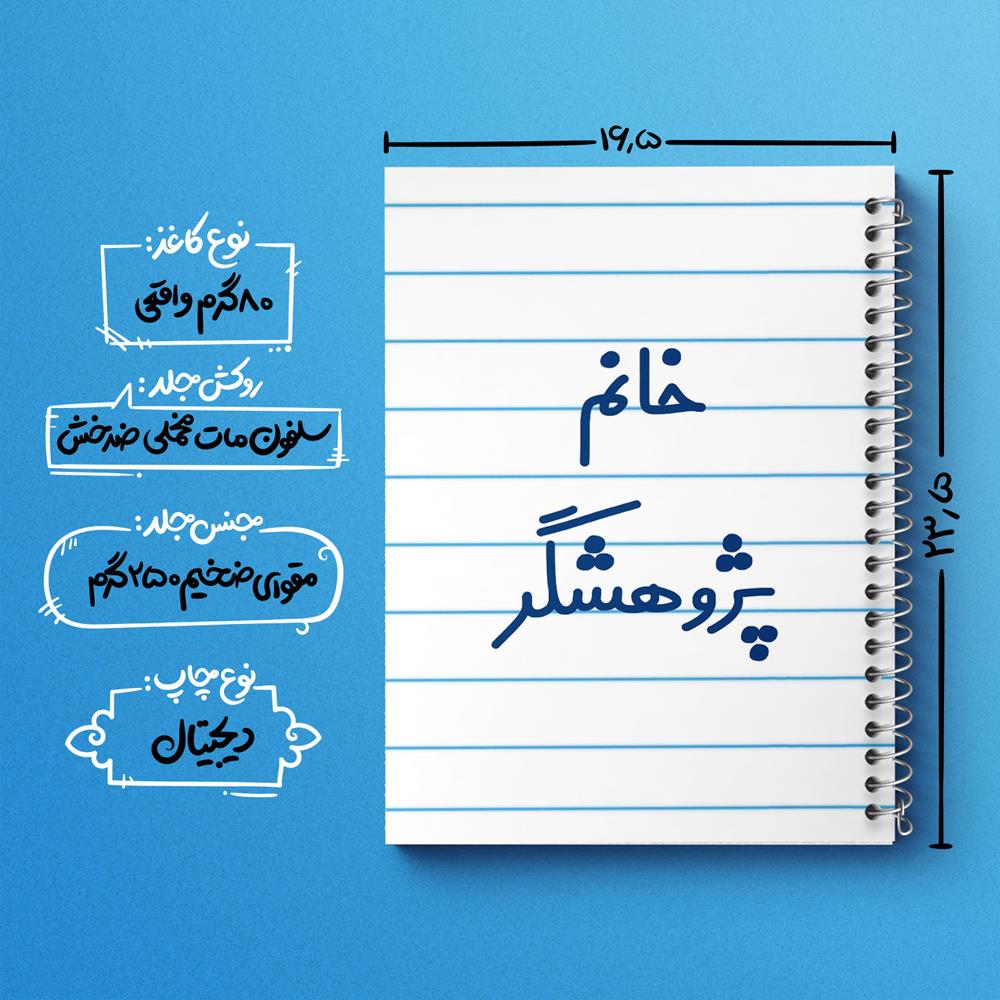 ۱۶٫۵
۲۳٫۵
خانم
پژوهشگر
نوع کاغذ:
۸۰گرم واقعی
روکش جلد:
سلفون مات مخملی ضدخش
جنس جلد:
مقوای ضخیم ۲۵۰گرم
نوع چاپ:
دیجیتال